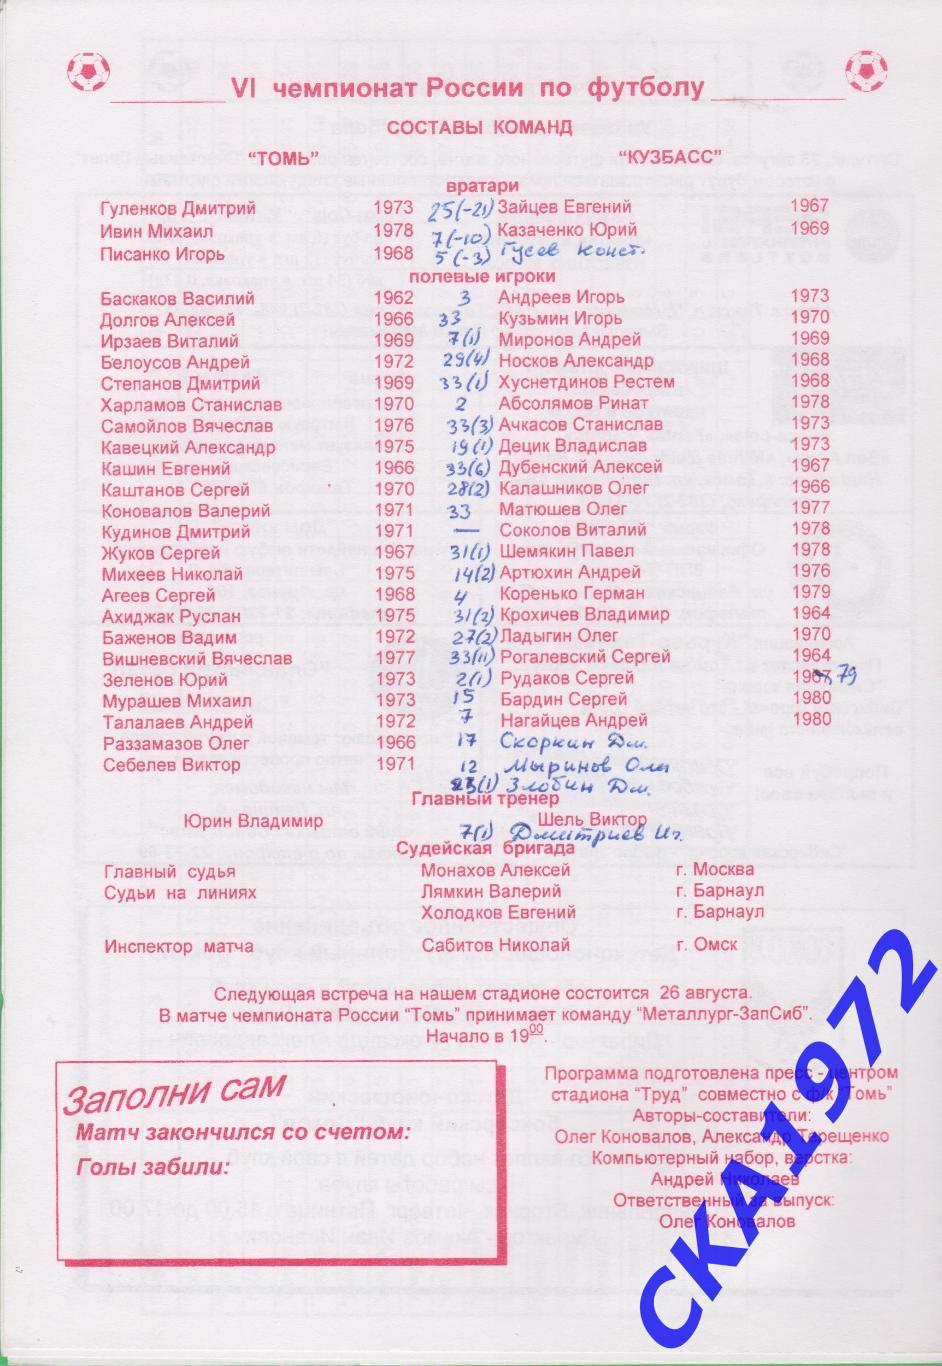 VI чемпионат России по футболу
СОСТАВЫ КОМАНД
“ТОМЬ” “КУЗБАСС”
вратари
Гуленков Дмитрий 1973 25(-21) Зайцев Евгений 1967
Ивин Михаил 1978 7(-10) Казаченко Юрий 1969
Писанко Игорь 1968 5(-3) Гусев Конст.
полевые игроки
Баскаков Василий 1962 3 Андреев Игорь 1973
Долгов Алексей 1966 33 Кузьмин Игорь 1970
Ирзаев Виталий 1969 7(1) Миронов Андрей 1969
Белоусов Андрей 1972 29(4) Носков Александр 1968
Степанов Дмитрий 1969 33(1) Хуснетдинов Рестем 1968
Харламов Станислав 1970 2 Абсолямов Ринат 1978
Самойлов Вячеслав 1976 33(3) Ачкасов Станислав 1973
Кавецкий Александр 1975 19(1) Децик Владислав 1973
Кашин Евгений 1966 33(6) Дубенский Алексей 1967
Каштанов Сергей 1970 28(2) Калашников Олег 1966
Коновалов Валерий 1971 33 Матюшев Олег 1977
Кудинов Дмитрий 1971 — Соколов Виталий 1978
Жуков Сергей 1967 31(1) Шемякин Павел 1978
Михеев Николай 1975 14(2) Артюхин Андрей 1976
Агеев Сергей 1968 4 Коренько Герман 1979
Ахиджак Руслан 1975 31(2) Крохичев Владимир 1964
Баженов Вадим 1972 27(2) Ладыгин Олег 1970
Вишневский Вячеслав 1977 33(11) Рогалевский Сергей 1964
Зеленов Юрий 1973 2(1) Рудаков Сергей 1967 79
Мурашев Михаил 1973 15 Бардин Сергей 1980
Талалаев Андрей 1972 7 Нагайцев Андрей 1980
Раззамазов Олег 1966 17 Скоркин Дм.
Себелев Виктор 1971 12 Мыринов Олег
(1) Злобин Дм.
Главный тренер
Юрин Владимир Шель Виктор
7(1) Дмитриев Иг.
Судейская бригада
Главный судья Монахов Алексей г. Москва
Судьи на линиях Лямкин Валерий г. Барнаул
Холодков Евгений г. Барнаул
Инспектор матча Сабитов Николай г. Омск
Следующая встреча на нашем стадионе состоится 26 августа.
В матче чемпионата России “Томь” принимает команду “Металлург-ЗапСиб”.
Начало в 19⁰⁰.
Заполни сам
Матч закончился со счетом:
Голы забили:
Программа подготовлена пресс - центром
стадиона “Труд” совместно с ф/к “Томь”
Авторы-составители:
Олег Коновалов, Александр Терещенко
Компьютерный набор, верстка:
Андрей Николаев
Ответственный за выпуск:
Олег Коновалов
СКА1972